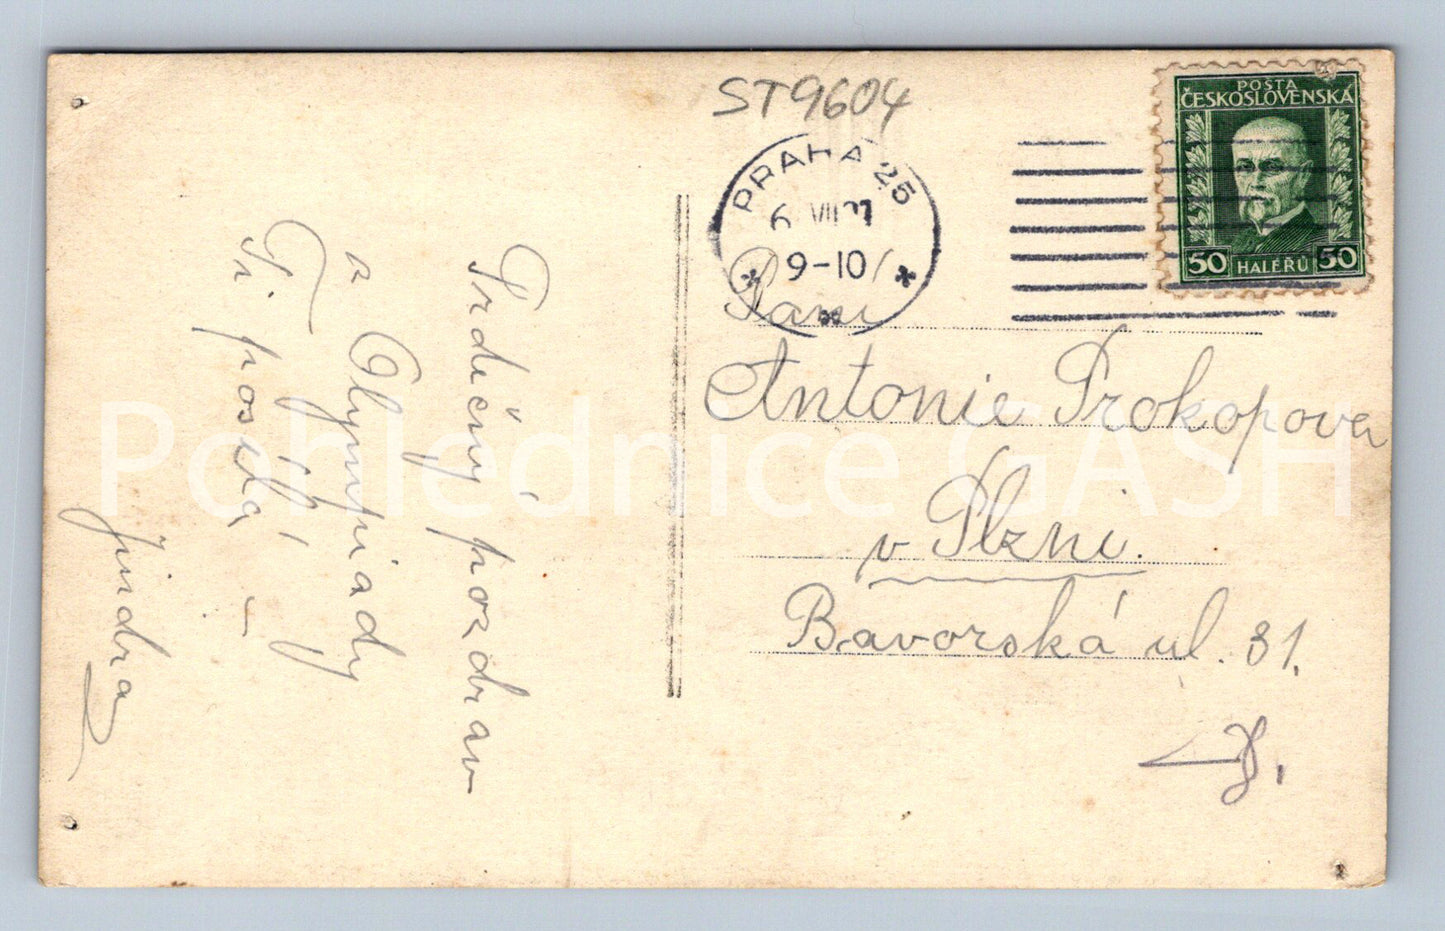 ST9604
POŠTA
ČESKOSLOVENSKÁ
50 HALÉŘŮ 50
PRAHA 25
6 VII 27
9-10
Paní
Antonie Prokopova
v Plzni.
Bavorská ul. 31.
Srdečný pozdrav
z Olympiády
Ti posílá
Jindra
Pohlednice GASH